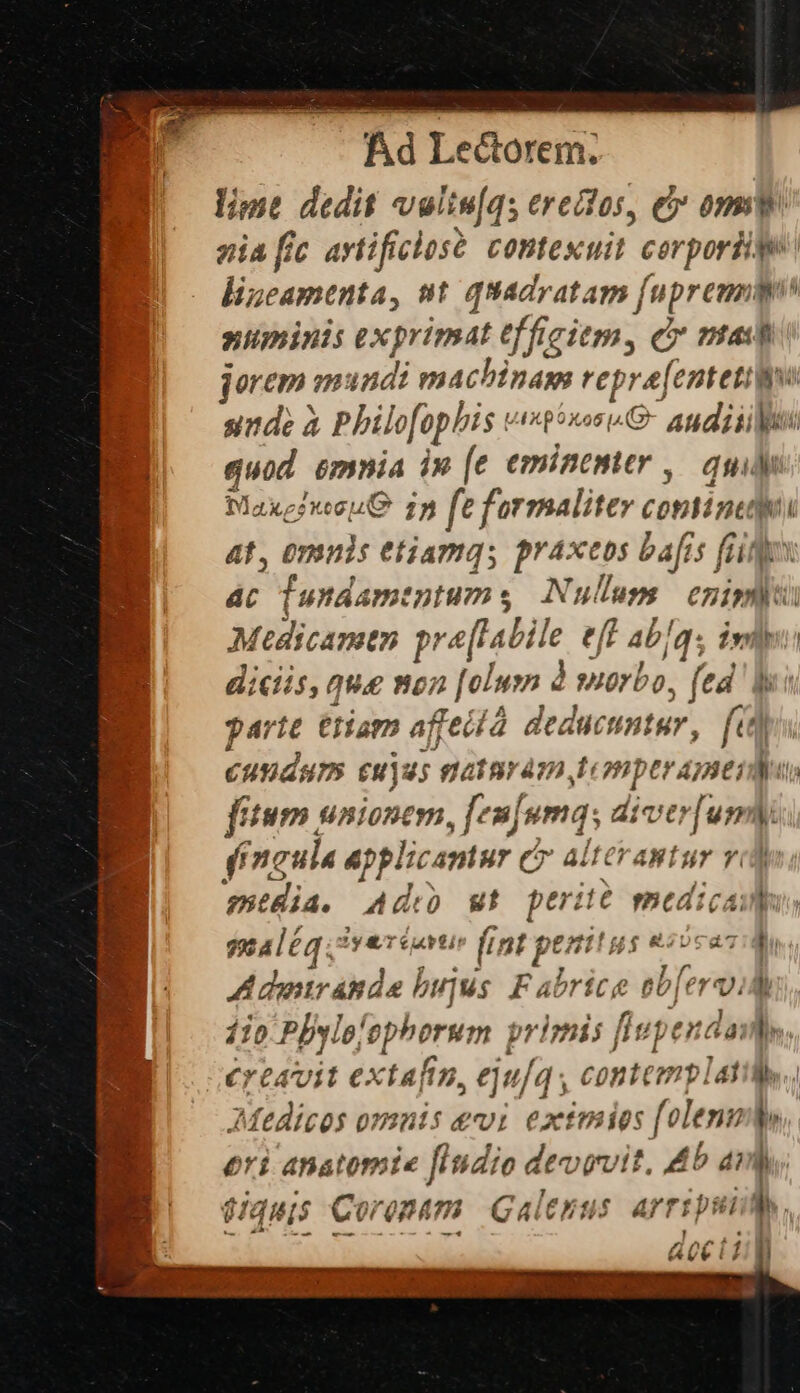 Ad Lectorem.
lime dedit vultuſq; erectos, & om
nia ſic artificiosè contexuit corpor
lineamenta, ut quadratam ſuprem
numinis exprimat effigiem, & ma
jorem mundi machinam repræſentet
unde à Philoſophis μικρόκοσμ⊕ audi
quod omnia in ſe eminenter, qu
Μακρόκοσμ⊕ in ſe formaliter contine
at, omnis etiamq; praxeos baſis
ac fundamentum; Nullum enim
Medicamen præſtabile eſt abſq; in
diciis, quæ non ſolum à morbo, ſed
parte etiam affectâ deducuntur, ſe
cundum cujus naturam, temperamen
ſitum unionem, ſenſumq; diverſum
ſingula applicantur & alterantur re
media. Adeò ut perite medica
maléq; ſint penitus
Admirandæ hujus Fabricæ obſerv
tio Phyloſophorum primis ſtupenda
creavit extaſin, ejuſq; contemplati
Medicos omnis ævi eximios ſolen
ori anatomiæ ſtudio devovit. Ab an
tiquis Coronam Galenus arripu
docti